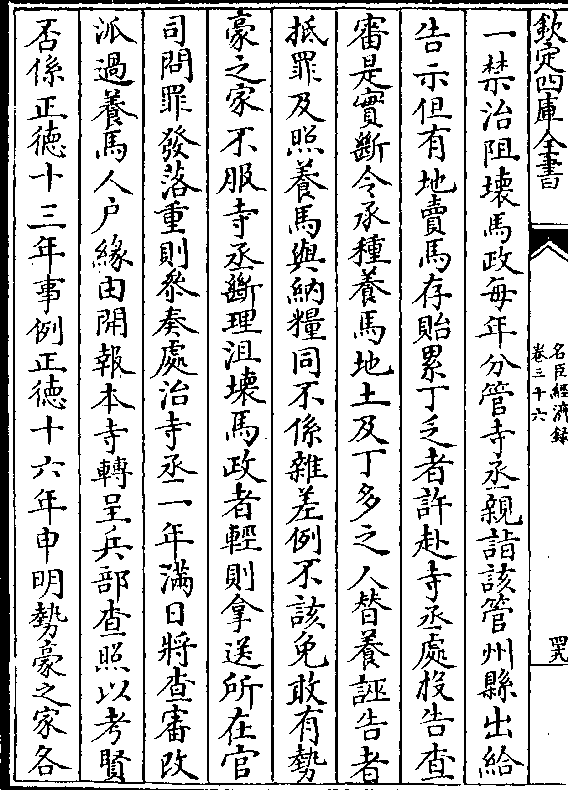 欽定四庫全書
名臣經濟録
卷三十六
四九
一禁治阻壞馬政每年分管寺丞親詣該管州縣出給
告示但有地賣馬存貽累丁乏者許赴寺丞處投告查
審是實斷令承種養馬地土及丁多之人替養誣告者
抵罪及照養馬與納糧同不係雜差例不該免敢有勢
豪之家不服寺丞斷理沮壞馬政者輕則拿送所在官
司問罪發落重則叅奏處治寺丞一年滿日將查審改
派過養馬人户緣由開報本寺轉呈兵部查照以考賢
否係正徳十三年事例正徳十六年申明勢豪之家各